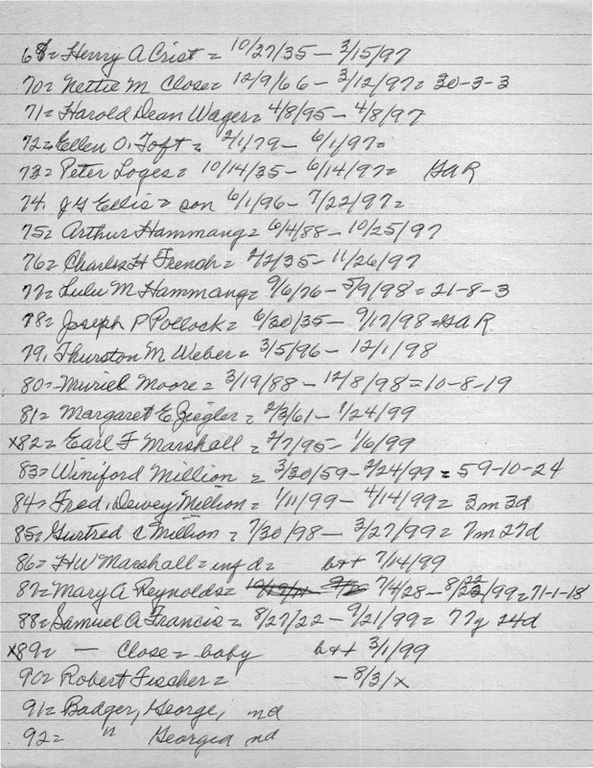 69= Henry A Crist = 10/27/35 – 3/15/97
70= Nettie M Close= 12/9/66 – 3/12/97= 30-3-3
71= Harold Dean Wager= 4/8/95 – 4/8/97
72= Ellen O. Toft = 2/1/79 – 6/1/97=
73= Peter Loges= 10/14/35 – 6/14/97= GAR
74. J G Ellis= son 6/1/96 – 7/22/97=
75= Arthur Hammang= 6/4/88 – 10/25/97
76= Charles H French= 2/2/35 – 11/26/97
77= Lulu M Hammang= 9/6/76 – 5/9/98 = 21-8-3
78= Joseph P Pollock= 6/30/35 – 9/17/98=GAR
79. Thurston M Weber= 3/5/96 – 12/1/98
80= Muriel Moore= 3/19/88 – 12/8/98=10-8-19
81= Margaret E Ziegler= 2/3/61 – 1/24/99
x82= Earl F Marshall = 2/7/95 – 1/6/99
83= Winiford Million = 3/30/59 – 2/24/99 = 59-10-24
84= Fred. Dewey Million= 1/11/99 – 4/14/99= 3m 3d
85= Gurtred C Million = 7/30/98 – 3/27/99= 7m 27d
86= HW Marshall= inf d= b++ 7/14/99
87= Mary A Reynolds= 7/4/28 – 8/22/99=71-1-18
88= Samuel A Francis= 8/27/22 – 9/21/99= 77y 24d
x89= — Close= baby b++ 3/1/99
90= Robert Fischer= – 8/3/x
91= Badger, George, nd
92= " Georgia nd